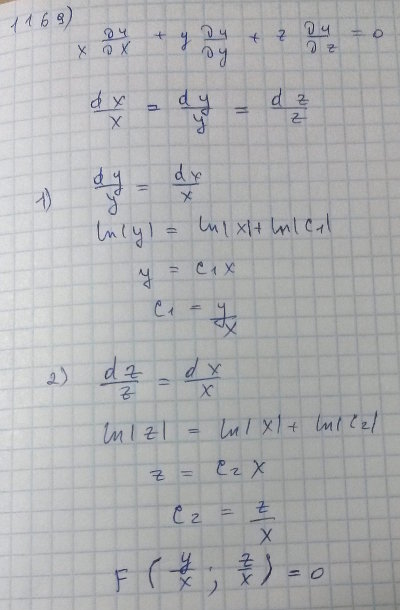 1169)
x ∂u/∂x + y ∂u/∂y + z ∂u/∂z = 0
dx/x = dy/y = dz/z
1) dy/y = dx/x
ln|y| = ln|x| + ln|C₁|
y = C₁x
C₁ = y/x
2) dz/z = dx/x
ln|z| = ln|x| + ln|C₂|
z = C₂x
C₂ = z/x
F (y/x ; z/x) = 0